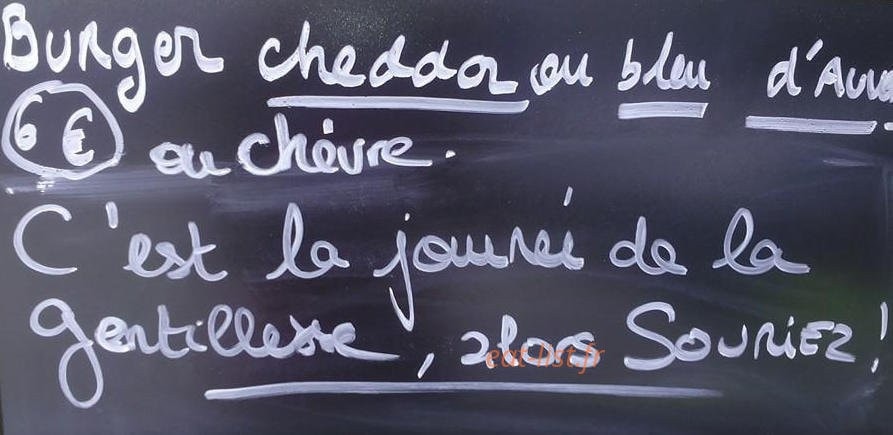 Burger cheddar ou bleu
6 € ou chèvre.
C'est la journéi de la
gentillesse, alors SOURIEZ!
eat-list.fr